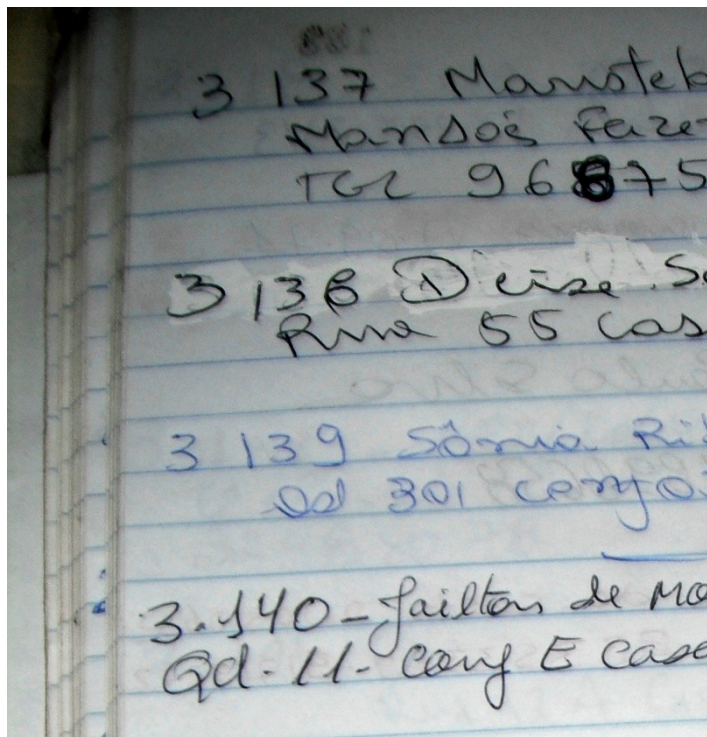 3 137
Mansões Faze
TEL 96875
3 138 Deize S
Rua 55 cas
3 139 Sônia Ri
Qd 301 conj
3.140-Jailton de Mo
Qd-11-conj E casa